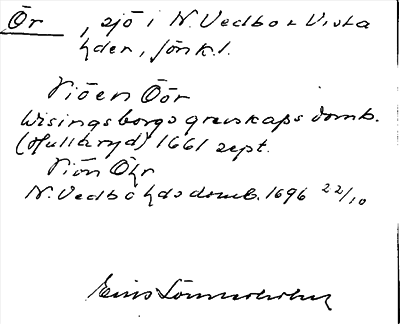 Ör, sjö i N. Vedbo o Vista
hder, Jönk. l.
Siöen Öör
Wisingsborgs grevskaps domb.
(Hullaryd) 1661 sept.
Siön Öhr
N. Vedbo hds domb. 1696 22/10